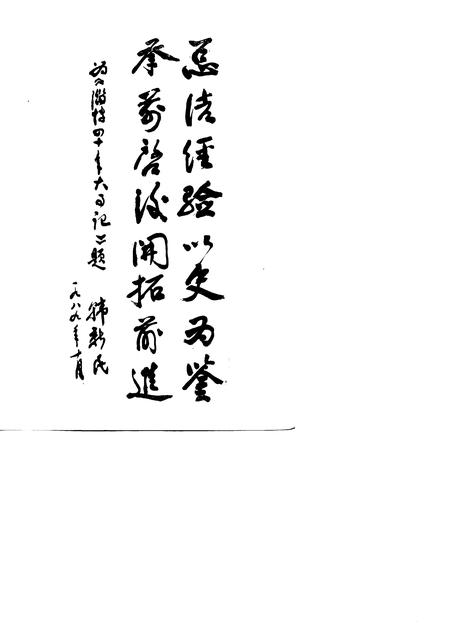 总结经验以史为鉴
承前启後開拓前進
为《四十年大事记》题
韩新民
一九八九年十月